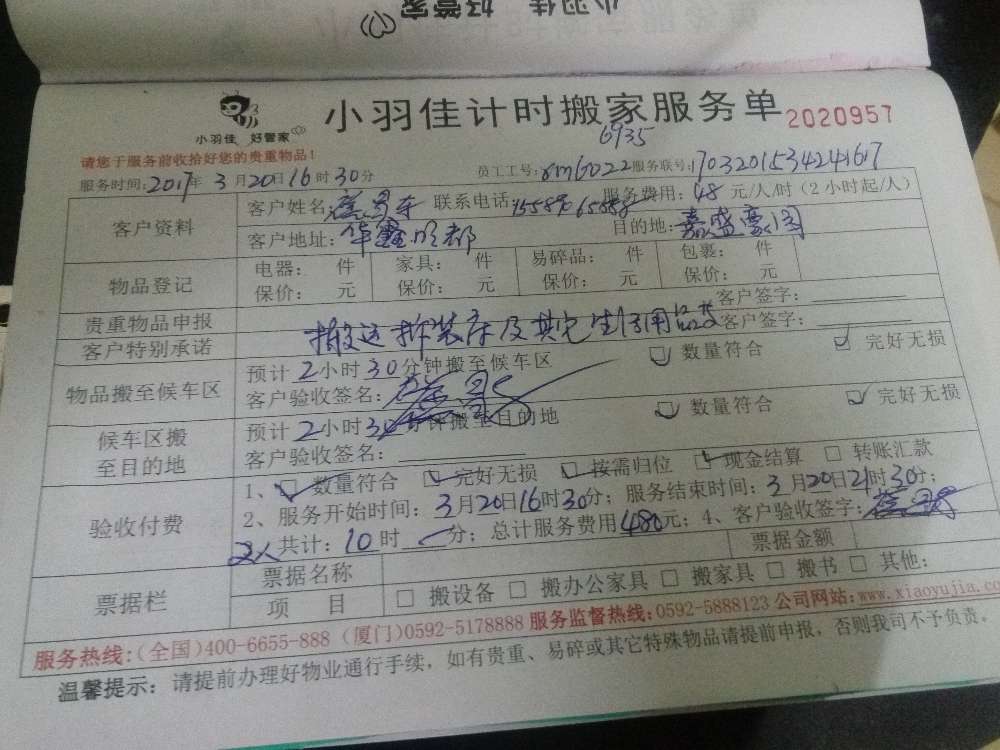 小羽佳 好管家
小羽佳 好管家
小羽佳计时搬家服务单 2020957
6935
请您于服务前收拾好您的贵重物品！
服务时间：2017年3月20日16时30分 员工工号：xm6022 服务联号：1703201534241617
客户资料 客户姓名： 联系电话： 服务费用：48元/人/时（2小时起/人）
客户地址：华鑫明都 目的地：嘉盛豪园
物品登记 电器： 件 家具： 件 易碎品： 件 包裹： 件
保价： 元 保价： 元 保价： 元 保价： 元
贵重物品申报 客户签字：
客户特别承诺 搬运拆装床及其它生活用品等 客户签字：
物品搬至候车区 预计2小时30分钟搬至候车区 数量符合 完好无损
客户验收签名：
候车区搬至目的地 预计2小时30分钟搬至目的地 数量符合 完好无损
客户验收签名：
验收付费 1、数量符合 完好无损 按需归位 现金结算 转账汇款
2、服务开始时间：3月20日16时30分；服务结束时间：3月20日21时30分；
2人共计：10时 分；总计服务费用480元；4、客户验收签字：
票据栏 票据名称 票据金额
项 目 □ 搬设备 □ 搬办公家具 □ 搬家具 □ 搬书 □ 其他：
服务热线：（全国）400-6655-888（厦门）0592-5178888 服务监督热线：0592-5888123 公司网站：www.xiaoyujia.com
温馨提示：请提前办理好物业通行手续，如有贵重、易碎或其它特殊物品请提前申报，否则我司不予负责。